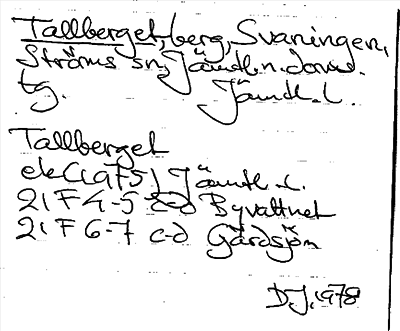 Tallberget, berg, Svaningen,
Ströms sn, Jämtl. n. doms.
tg. Jämtl. l.
Tallberget
ek (1975) Jämtl. l.
21 F 4-5 c-d Byvattnet
21 F 6-7 c-d Gärdsjön
D.J. 1978